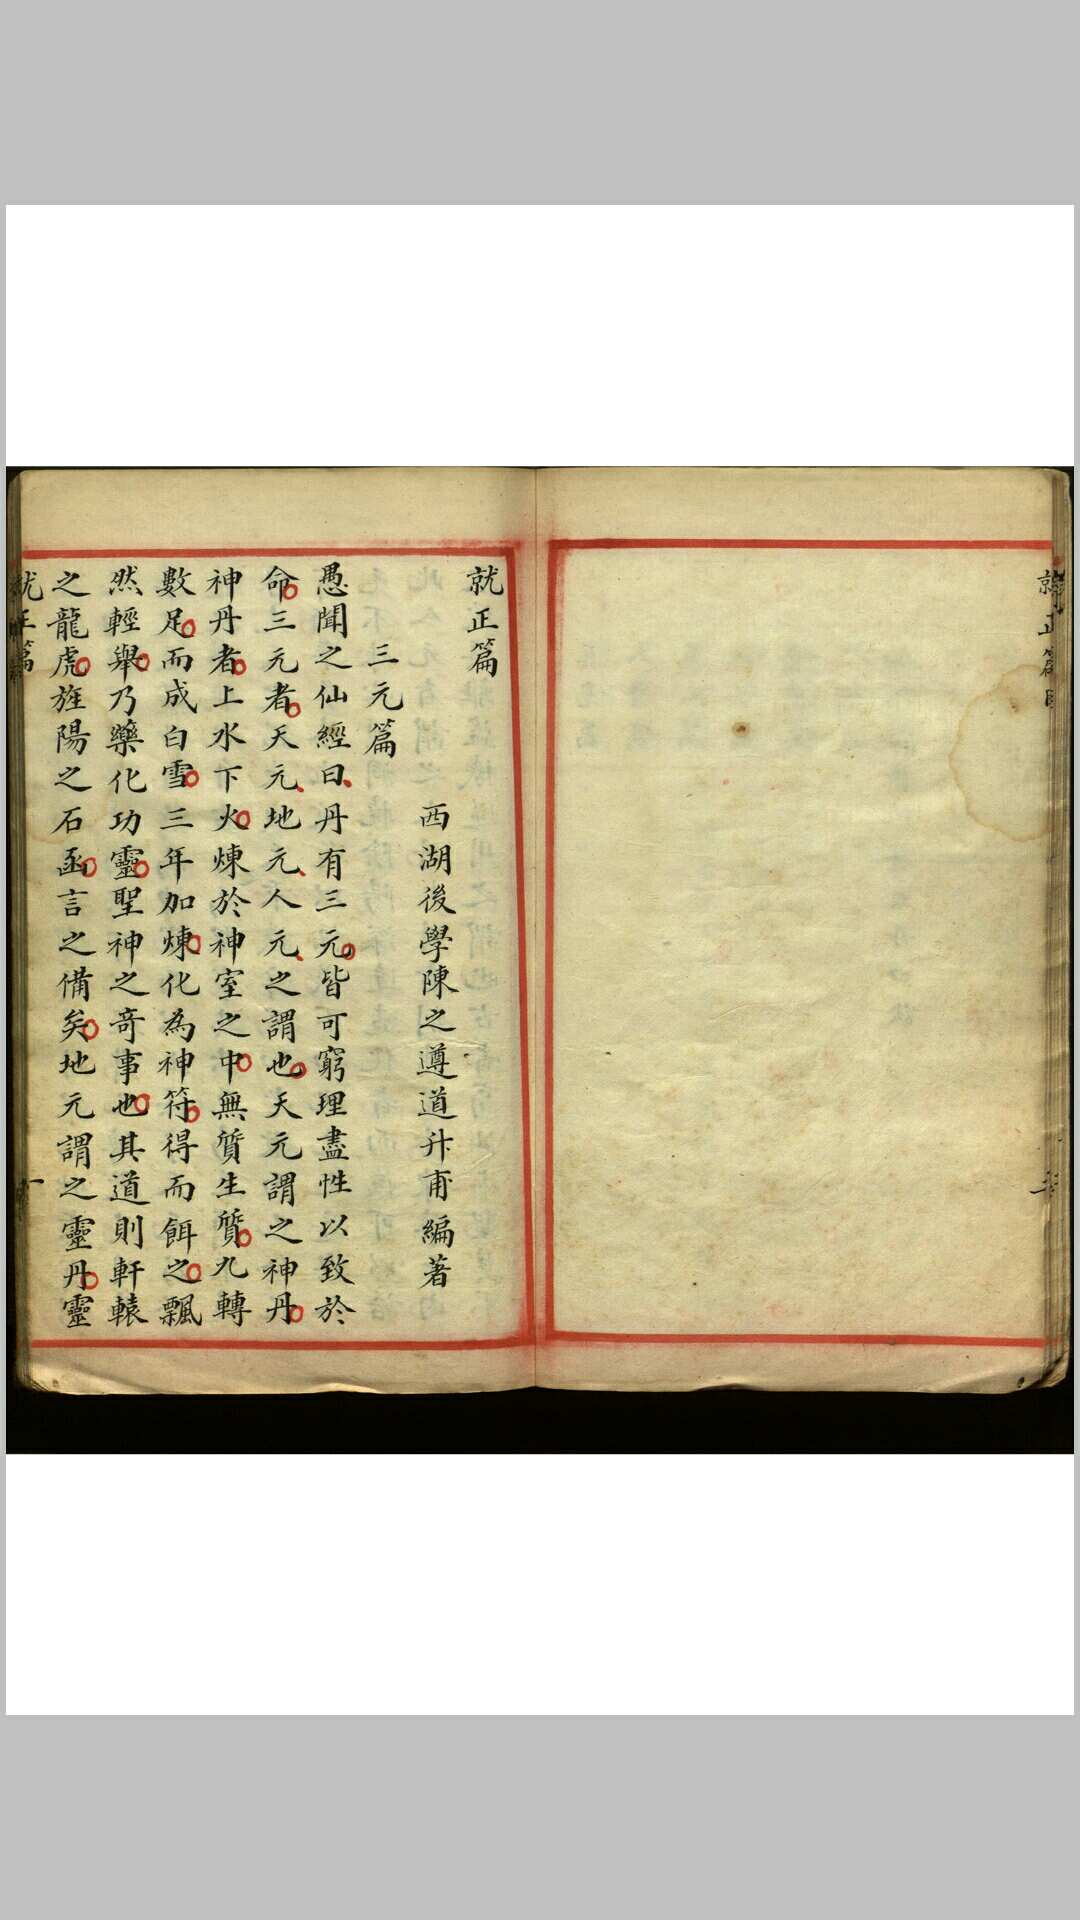 就正篇
西湖後學陳之遵道升甫編著
三元篇
愚聞之仙經曰丹有三元皆可窮理盡性以致於
命三元者天元地元人元之謂也天元謂之神丹
神丹者上水下火煉於神室之中無質生質九轉
數足而成白雪三年加煉化為神符得而餌之飄
然輕舉乃藥化功靈聖神之奇事也其道則軒轅
之龍虎旌陽之石函言之備矣地元謂之靈丹靈
就正篇 一